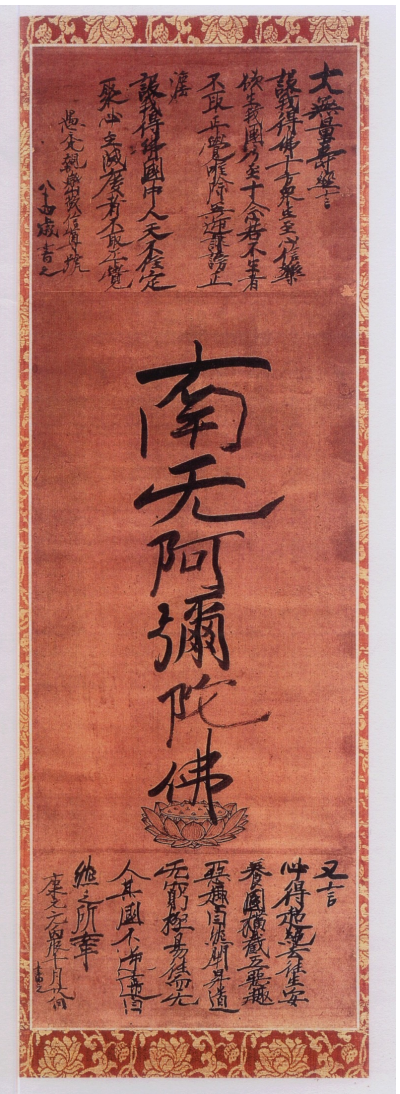 大無量壽經言
設我得佛十方衆生至心信樂
欲生我國乃至十念若不生者
不取正覺唯除五逆誹謗正
灋
設我得佛國中人天不住定
聚必至滅度者不取正覺
愚禿親鸞敬信尊號
八十四歳書之
南无阿彌陀佛
又言
必得超絶去往生安
養國橫截五惡趣
惡趣自然閉昇道
无窮極易往而无
人其國不逆違自
然之所牽
康元元丙辰十月廿八日
書之